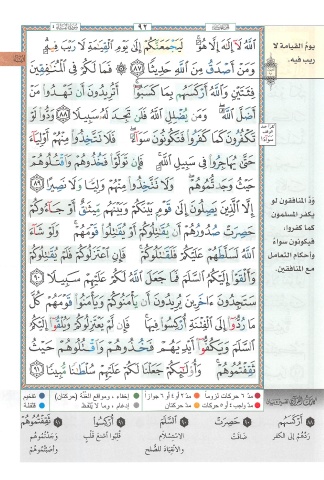 ٩٢
ٱللَّهُ لَآ إِلَٰهَ إِلَّا هُوَ ۚ لَيَجْمَعَنَّكُمْ إِلَىٰ يَوْمِ ٱلْقِيَٰمَةِ لَا رَيْبَ فِيهِ ۗ
وَمَنْ أَصْدَقُ مِنَ ٱللَّهِ حَدِيثًا ٨٧ ۞ فَمَا لَكُمْ فِى ٱلْمُنَٰفِقِينَ
فِئَتَيْنِ وَٱللَّهُ أَرْكَسَهُم بِمَا كَسَبُوٓا۟ ۚ أَتُرِيدُونَ أَن تَهْدُوا۟ مَنْ
أَضَلَّ ٱللَّهُ ۖ وَمَن يُضْلِلِ ٱللَّهُ فَلَن تَجِدَ لَهُۥ سَبِيلًا ٨٨ وَدُّوا۟ لَوْ
تَكْفُرُونَ كَمَا كَفَرُوا۟ فَتَكُونُونَ سَوَآءً ۖ فَلَا تَتَّخِذُوا۟ مِنْهُمْ أَوْلِيَآءَ
حَتَّىٰ يُهَاجِرُوا۟ فِى سَبِيلِ ٱللَّهِ ۚ فَإِن تَوَلَّوْا۟ فَخُذُوهُمْ وَٱقْتُلُوهُمْ
حَيْثُ وَجَدتُّمُوهُمْ ۖ وَلَا تَتَّخِذُوا۟ مِنْهُمْ وَلِيًّا وَلَا نَصِيرًا ٨٩
إِلَّا ٱلَّذِينَ يَصِلُونَ إِلَىٰ قَوْمٍۭ بَيْنَكُمْ وَبَيْنَهُم مِّيثَٰقٌ أَوْ جَآءُوكُمْ
حَصِرَتْ صُدُورُهُمْ أَن يُقَٰتِلُوكُمْ أَوْ يُقَٰتِلُوا۟ قَوْمَهُمْ ۚ وَلَوْ شَآءَ
ٱللَّهُ لَسَلَّطَهُمْ عَلَيْكُمْ فَلَقَٰتَلُوكُمْ ۚ فَإِنِ ٱعْتَزَلُوكُمْ فَلَمْ يُقَٰتِلُوكُمْ
وَأَلْقَوْا۟ إِلَيْكُمُ ٱلسَّلَمَ فَمَا جَعَلَ ٱللَّهُ لَكُمْ عَلَيْهِمْ سَبِيلًا ٩٠
سَتَجِدُونَ ءَاخَرِينَ يُرِيدُونَ أَن يَأْمَنُوكُمْ وَيَأْمَنُوا۟ قَوْمَهُمْ كُلَّ
مَا رُدُّوٓا۟ إِلَى ٱلْفِتْنَةِ أُرْكِسُوا۟ فِيهَا ۚ فَإِن لَّمْ يَعْتَزِلُوكُمْ وَيُلْقُوٓا۟ إِلَيْكُمُ
ٱلسَّلَمَ وَيَكُفُّوٓا۟ أَيْدِيَهُمْ فَخُذُوهُمْ وَٱقْتُلُوهُمْ حَيْثُ
ثَقِفْتُمُوهُمْ ۚ وَأُو۟لَٰٓئِكُمْ جَعَلْنَا لَكُمْ عَلَيْهِمْ سُلْطَٰنًا مُّبِينًا ٩١
يوم القيامة لا
ريب فيه.
ودّ المنافقون لو
يكفر المسلمون
كما كفروا،
فيكونون سواءً
وأحكام التعامل
مع المنافقين.
مدّ ٦ حركات لزوماً مدّ ٢ أو ٤ أو ٦ جوازاً إخفاء، ومواقع الغُنَّة (حركتان) تفخيم
مدّ واجب ٤ أو ٥ حركات مدّ حركتان إدغام، وما لا يُلفظ قلقلة
أَرْكَسَهُمْ حَصِرَتْ السَّلَمَ أُرْكِسُوا ثَقِفْتُمُوهُمْ
رَدَّهُمْ إلى الكفر ضَاقَتْ الاستسلام قُلِبُوا أشنع قَلْبٍ وَجَدْتُمُوهُمْ
والانقياد للصُّلح